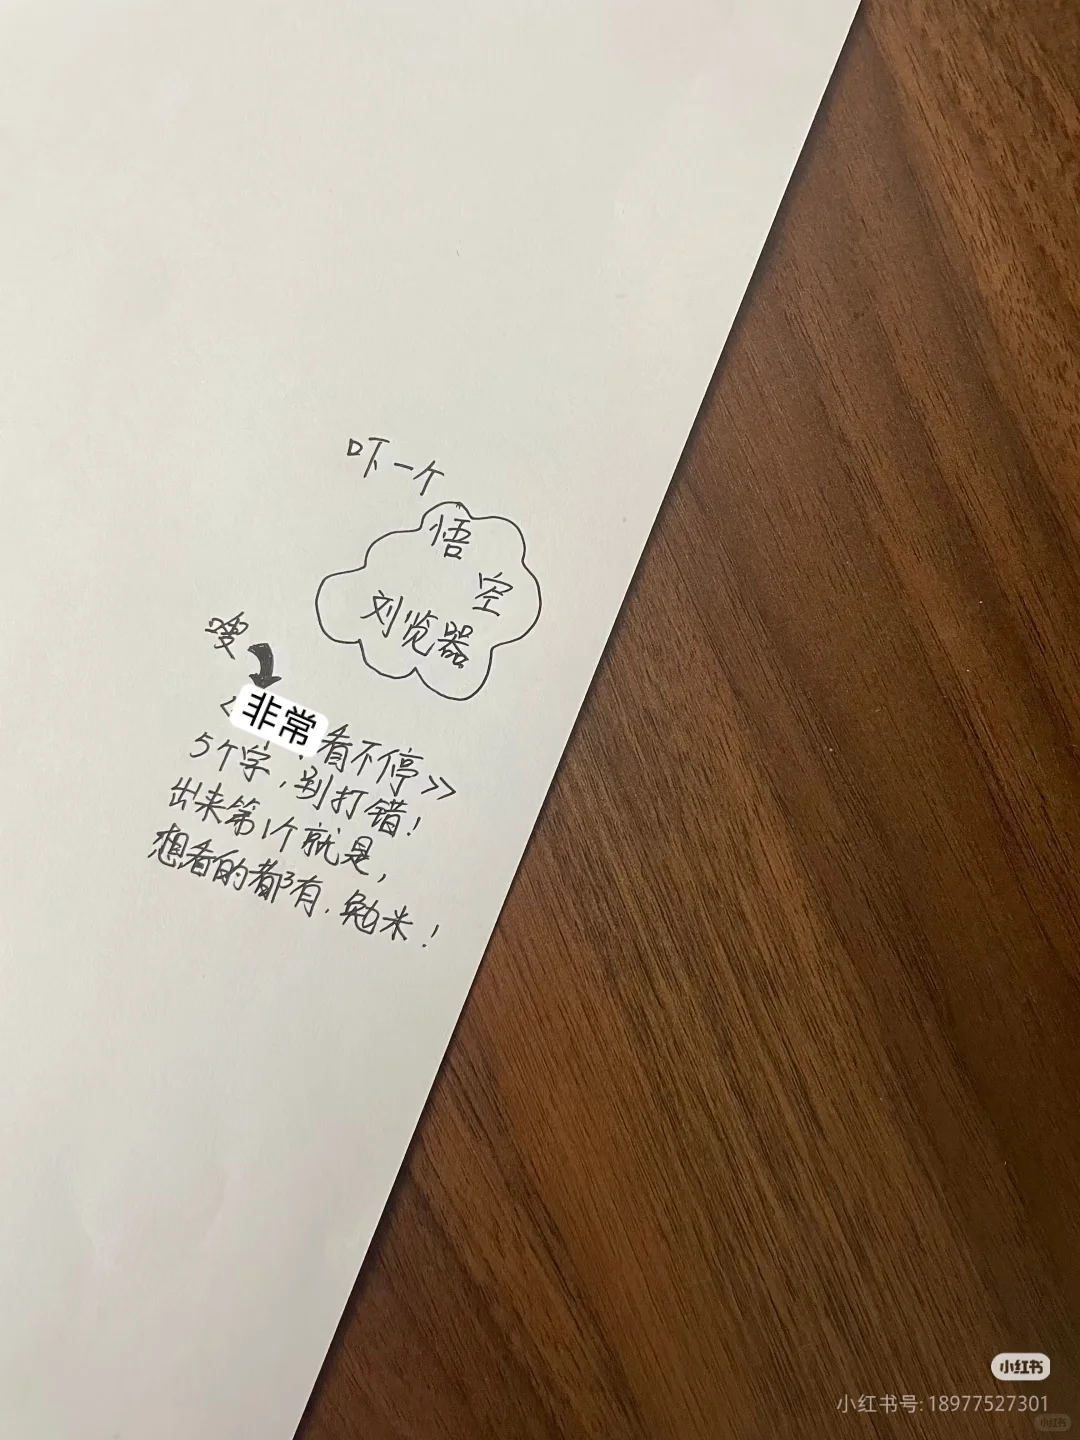 吓一个
悟
空
刘览器
嗖
非常看不停>>
5个字,别打错!
出来第1个就是,
想看的都有.勉米!
小红书
小红书号: 18977527301
小红书